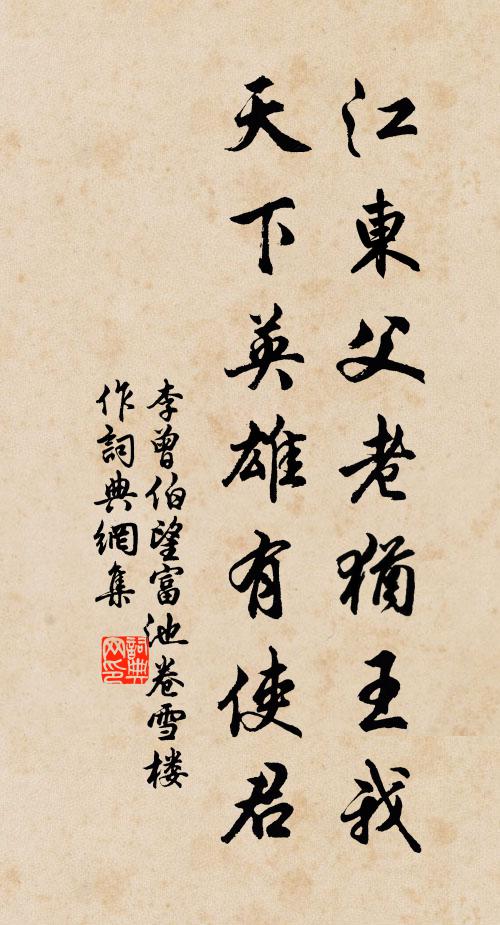 江東父老猶王我
天下英雄有使君
李曾伯望富池卷雪楼
作詞典網集
詞典网印